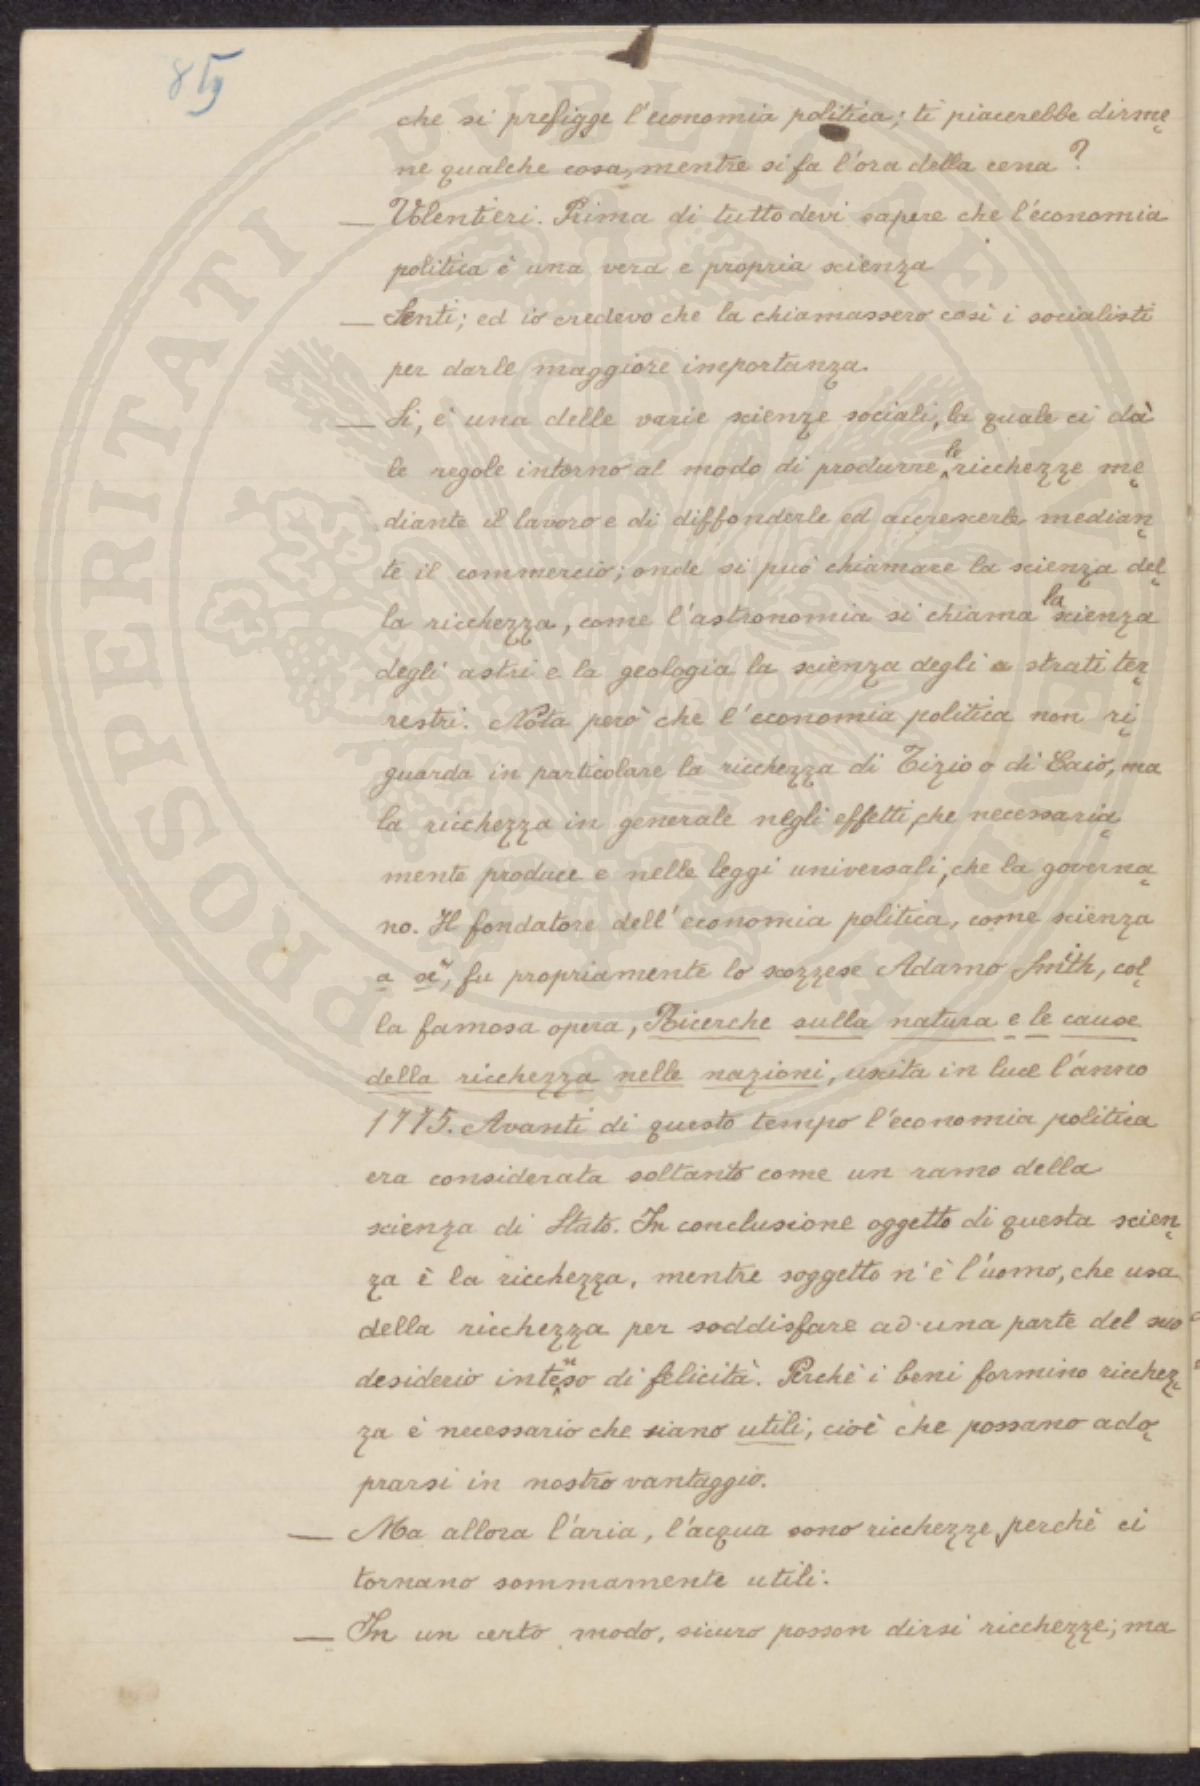 8
che si prefigge l'economia politica; ti piacerebbe dirme
ne qualche cosa, mentre si fa l'ora della cena?
— Volentieri. Prima di tutto devi sapere che l'economia
politica è una vera e propria scienza
— Senti; ed io credevo che la chiamassero così i socialisti
per darle maggiore importanza.
— Si, è una delle varie scienze sociali, la quale ci dà
le regole intorno al modo di produrne le ricchezze me
diante il lavoro e di diffonderle ed accrescerle median
te il commercio; onde si può chiamare la scienza del
la ricchezza, come l'astronomia si chiama la scienza
degli astri e la geologia la scienza degli a strati ter
restri. Nota però che l'economia politica non ri
guarda in particolare la ricchezza di Tizio o di Caio, ma
la ricchezza in generale negli effetti, che necessaria
mente produce e nelle leggi universali, che la governa
no. Il fondatore dell'economia politica, come scienza
a sè, fu propriamente lo scozzese Adamo Smith, col
la famosa opera, Ricerche sulla natura e le cause
della ricchezza nelle nazioni, uscita in luce l'anno
1775. Avanti di questo tempo l'economia politica
era considerata soltanto come un ramo della
scienza di Stato. In conclusione oggetto di questa scien
za è la ricchezza, mentre soggetto n'è l'uomo, che usa
della ricchezza per soddisfare ad una parte del suo
desiderio intenso di felicità. Perchè i beni formino ricchez
za è necessario che siano utili, cioè che possano ado
prarsi in nostro vantaggio.
— Ma allora l'aria, l'acqua sono ricchezze, perchè ci
tornano sommamente utili.
— In un certo modo, sicuro posson dirsi ricchezze; ma
PROSPERITATI PUBLICAE AUGENDAE